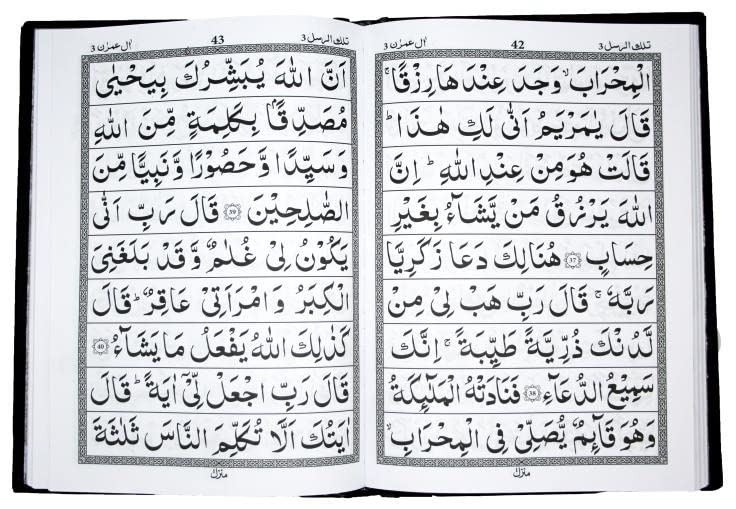 تلك الرسل 3
42
اٰل عمرٰن 3
الْمِحْرَابَ ۙ وَجَدَ عِنْدَهَا رِزْقًا ۚ
قَالَ يٰمَرْيَمُ اَنّٰى لَكِ هٰذَا ؕ
قَالَتْ هُوَ مِنْ عِنْدِ اللّٰهِ ؕ اِنَّ
اللّٰهَ يَرْزُقُ مَنْ يَّشَآءُ بِغَيْرِ
حِسَابٍ ﴿37﴾ هُنَالِكَ دَعَا زَكَرِيَّا
رَبَّهٗ ۚ قَالَ رَبِّ هَبْ لِيْ مِنْ
لَّدُنْكَ ذُرِّيَّةً طَيِّبَةً ۚ اِنَّكَ
سَمِيْعُ الدُّعَآءِ ﴿38﴾ فَنَادَتْهُ الْمَلٰٓئِكَةُ
وَهُوَ قَآئِمٌ يُّصَلِّيْ فِي الْمِحْرَابِ ۙ
منزل
تلك الرسل 3
43
اٰل عمرٰن 3
اَنَّ اللّٰهَ يُبَشِّرُكَ بِيَحْيٰى
مُصَدِّقًۢا بِكَلِمَةٍ مِّنَ اللّٰهِ
وَسَيِّدًا وَّحَصُوْرًا وَّنَبِيًّا مِّنَ
الصّٰلِحِيْنَ ﴿39﴾ قَالَ رَبِّ اَنّٰى
يَكُوْنُ لِيْ غُلٰمٌ وَّقَدْ بَلَغَنِيَ
الْكِبَرُ وَامْرَاَتِيْ عَاقِرٌ ؕ قَالَ
كَذٰلِكَ اللّٰهُ يَفْعَلُ مَا يَشَآءُ ﴿40﴾
قَالَ رَبِّ اجْعَلْ لِّيْٓ اٰيَةً ؕ قَالَ
اٰيَتُكَ اَلَّا تُكَلِّمَ النَّاسَ ثَلٰثَةَ
منزل